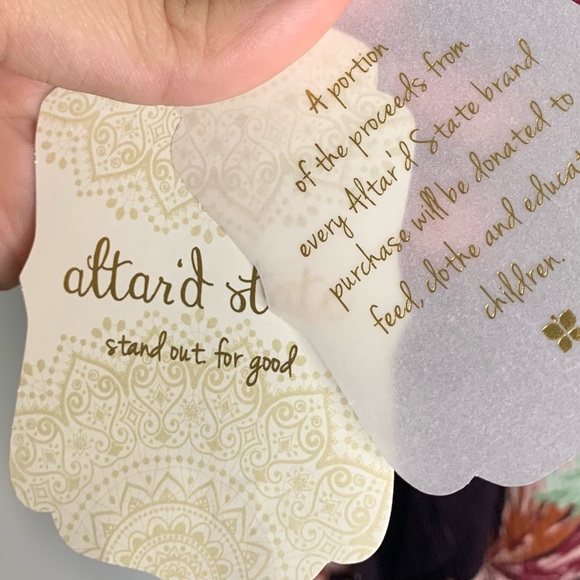 altar'd st
stand out for good
A portion
of the proceeds from
every Altar'd State brand
purchase will be donated to
feed, clothe and educat
children.